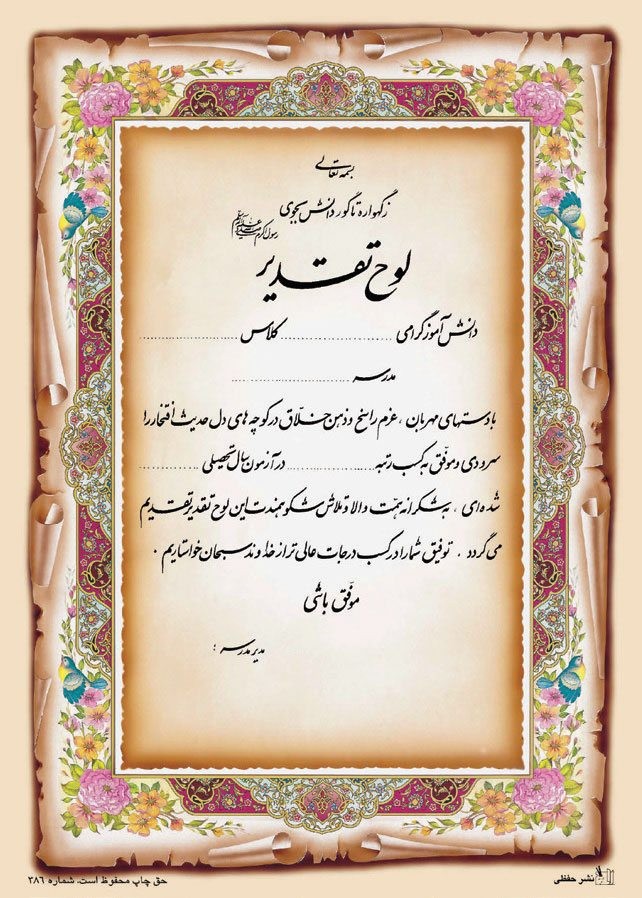 بسمه تعالی
ز گهواره تا گور دانش بجوی
رسول اکرم صلی الله علیه و آله وسلم
لوح تقدیر
دانش آموز گرامی .................... کلاس ....................
مدرسه ....................
با دستهای مهربان ، عزم راسخ و ذهن خلّاق در کوچه های دل حدیث افتخار را
سرودی و موفّق به کسب رتبه .................... در آزمون سال تحصیلی ....................
شده ای ، به شکرانه همّت والا و تلاش مشکوهمندت این لوح تقدیر تقدیم
می گردد . توفیق شما را در کسب درجات عالی تر از خداوند سبحان خواستاریم .
موفّق باشی
مدیر مدرسه :
نشر حفظی
حق چاپ محفوظ است. شماره ۳۸۶